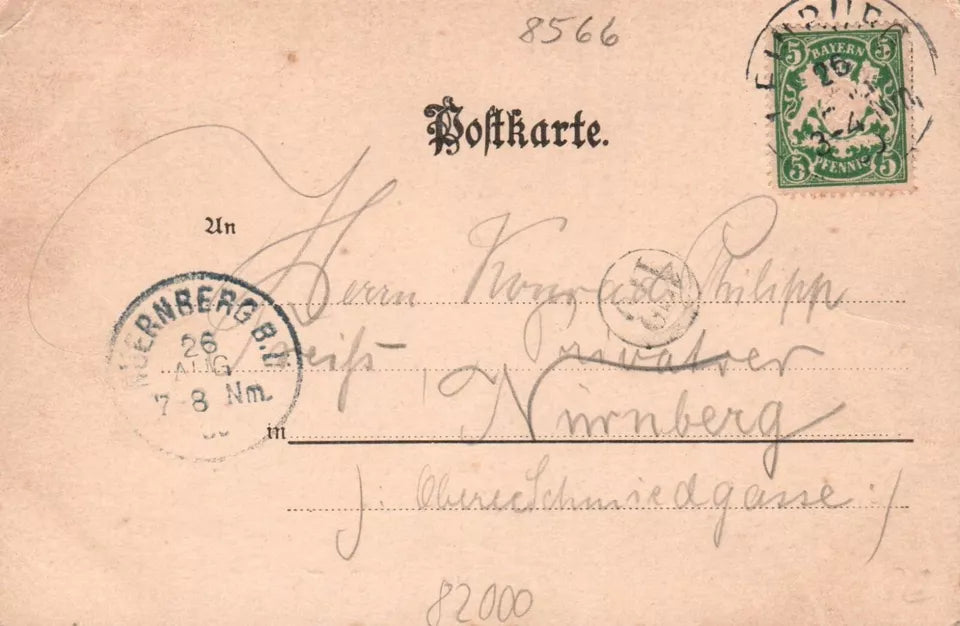 8566
5 5
BAYERN
26
3-4
5 PFENNIG 5
Postkarte.
An
Herrn Konrad Philipp
NUERNBERG B.
26
AUG
7-8 Nm.
Privatier
in Nürnberg
Obere Schmiedgasse
82000